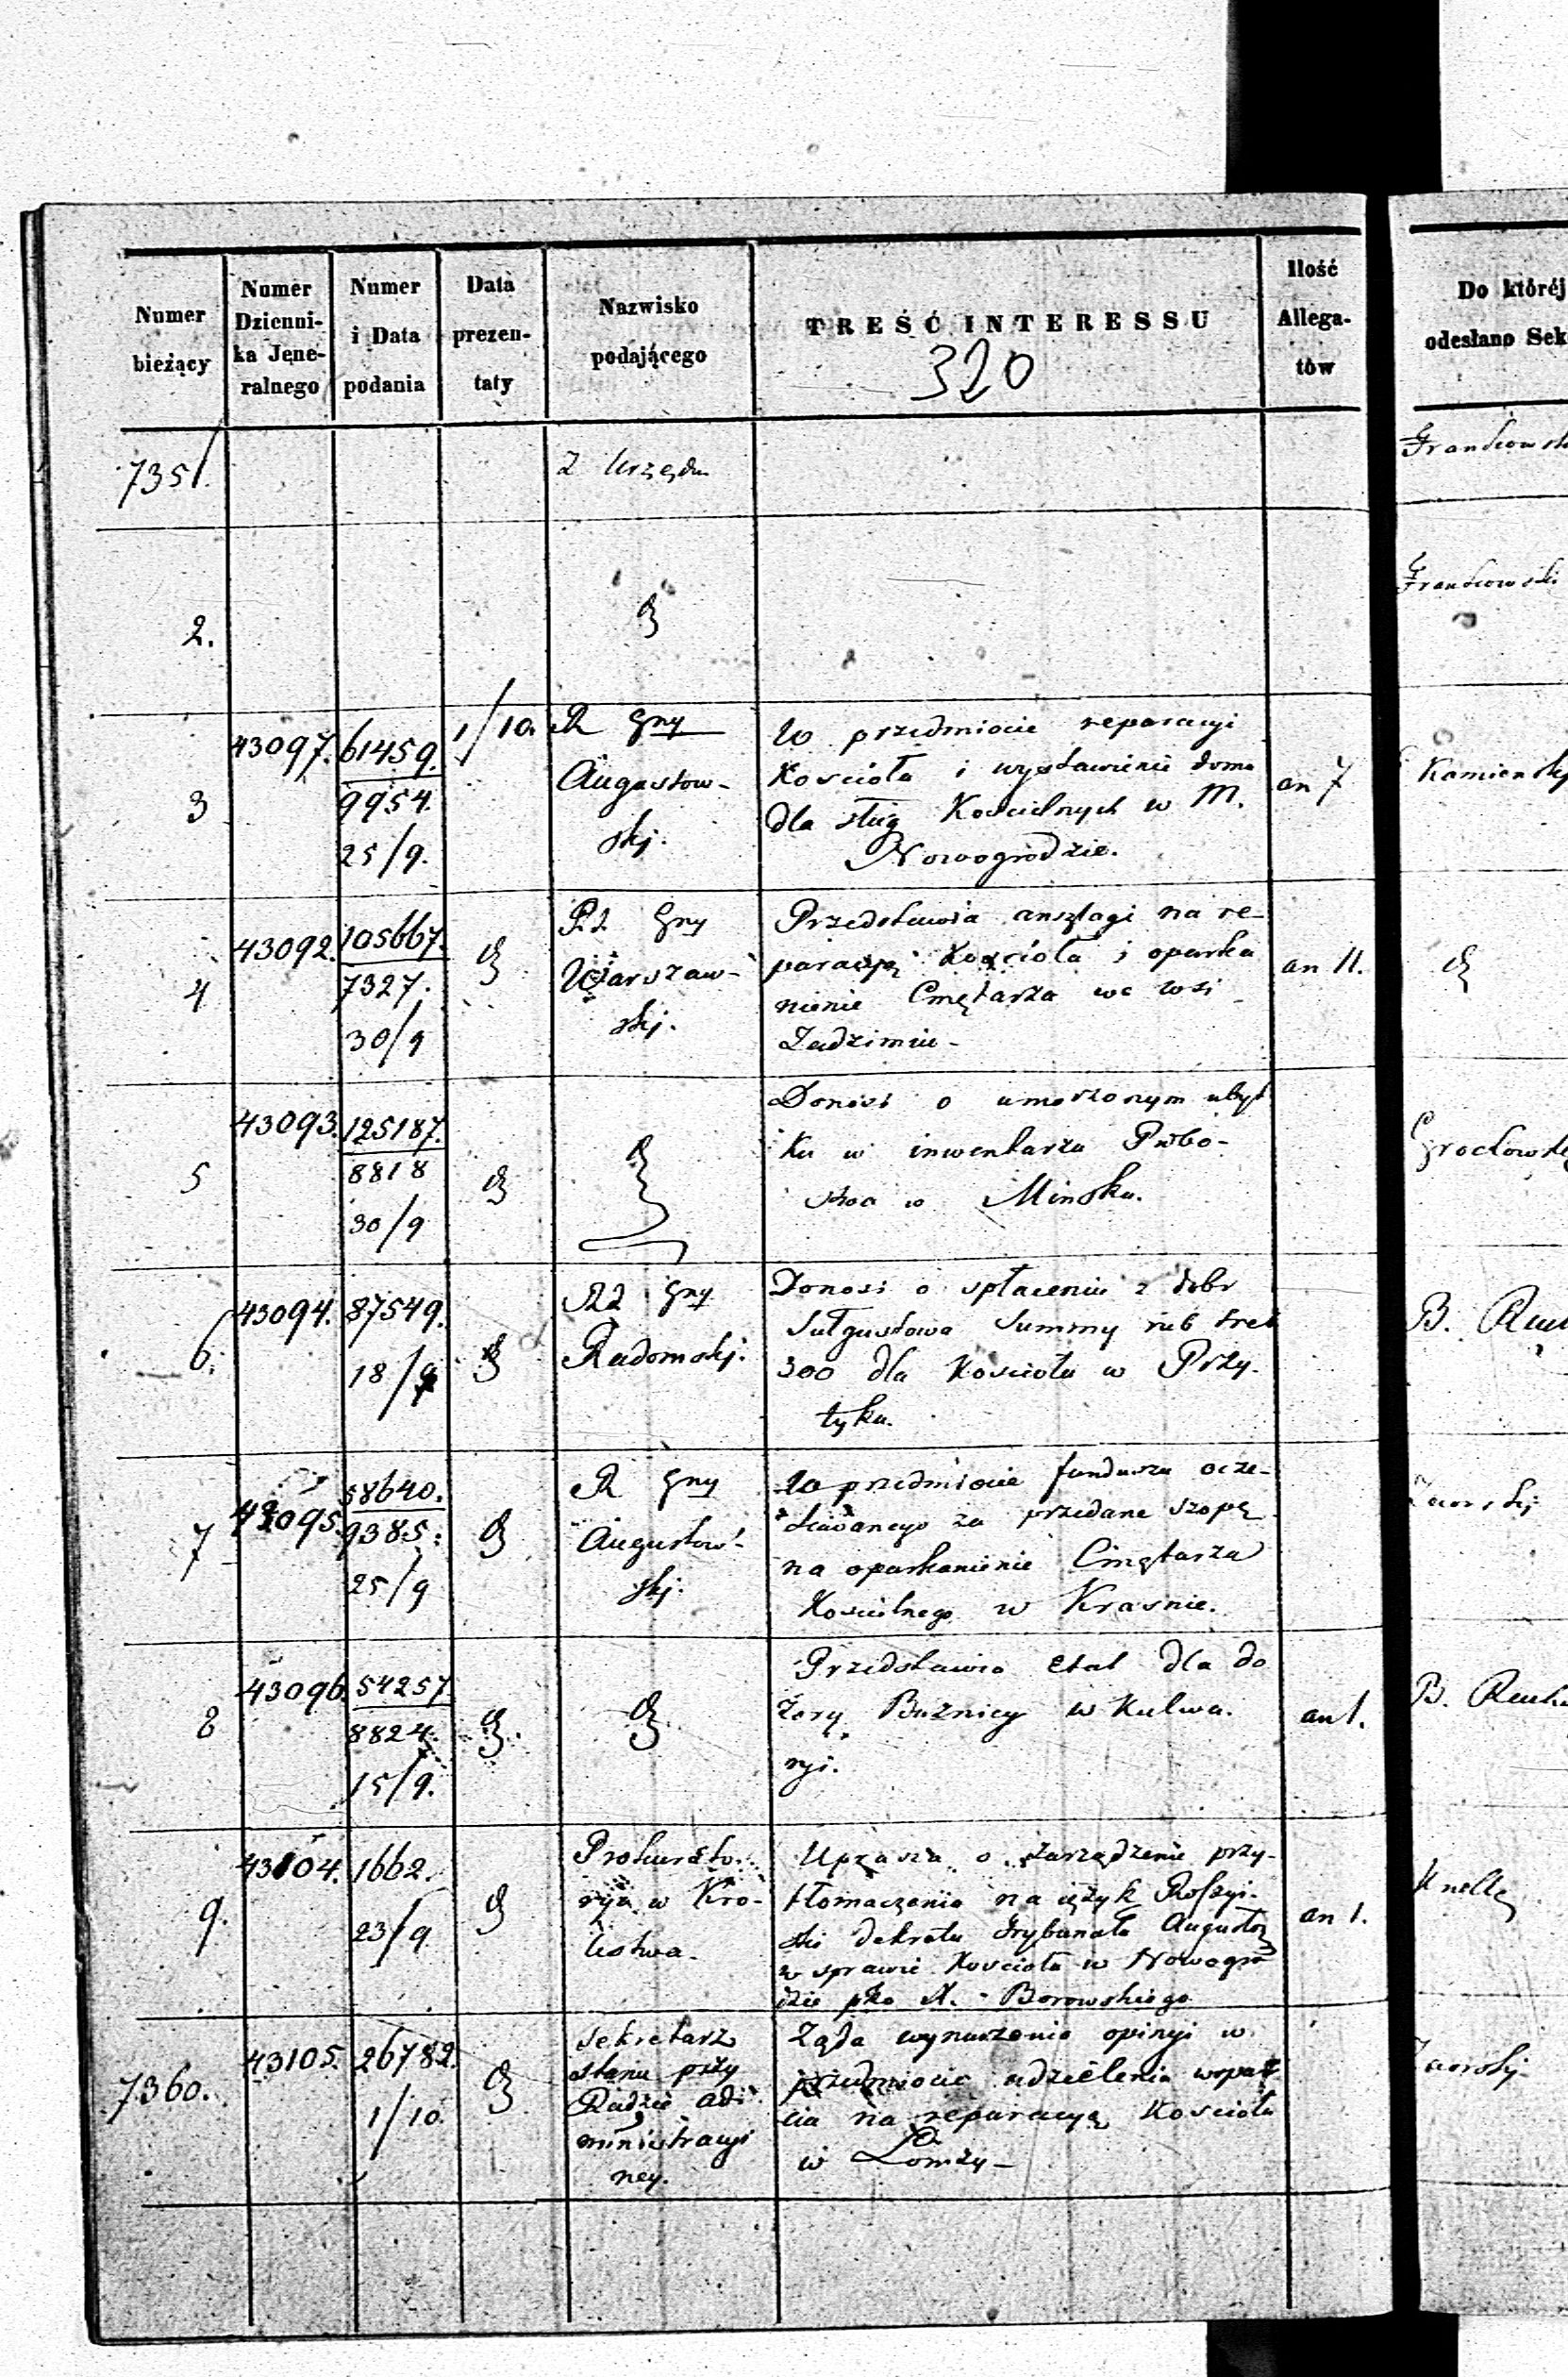 Numer bieżący
Numer Dzienni-ka Jene-ralnego
Numer i Data podania
Data prezen-taty
Nazwisko podającego
TREŚĆ INTERESSU
Ilość Allega-tów
Do któréj
odesłano Sek
320
7351.
Z Urzędu
2.
3
43097.
61459.
9954.
25/9.
1/10.
R Gny
Augustow-
skj.
W przedmiocie reparacyi
Kościoła i wystawienie domu
dla sług Kościelnych w M.
Nowogrodzie.
an 7
Kamiensk
4
43092.
105667.
7327.
30/9
Rd Gny
Warszaw-
skj.
Przedstawia anszlagi na re-
paracyę Kościoła i oparka
nienie Cmętarza we wsi
Zadzimiu-
an 11.
5
43093.
125187.
8818
30/9
Donosi o umorzonym ubyt
ku w inwentarzu Probo-
stwa w Minsku.
6.
43094.
87549.
18/9
Rd Gny
Radomskj.
Donosi o spłaceniu z dobr
Sułgustowa Summy rub sreb
300 dla Kościoła w Przy-
tyku.
B.
7
43095.
58640.
9385.
25/9
R Gny
Augustow-
skj.
W przedmiocie funduszu ocze-
kiwanego za przedane szopę
na oparkanienie Cmętarza
Kościelnego w Krasnie.
8
43096.
54257.
8824.
15/9.
Przedstawia etat dla do
zoru Bużnicy w Kalwa.
ryi.
an 1.
B.
9.
43104.
1662.
23/9
Prokurato.
rya w Kro-
lestwa.
Uprasza o zarządzenie przy-
tłomaczenia na język Rossyi-
ski dekretu Trybunału Augustow
w sprawie Kościoła w Nowogro
dzie pko A. Borowskiego
an 1.
7360.
43105.
26782.
1/10.
Sekretarz
stanu przy
Radzie ad-
ministracyi
ney.
Żąda wynurzenia opinyi w
przedmiocie udzielenia wspar
cia na reparacyę Kościoła
w Łomży-